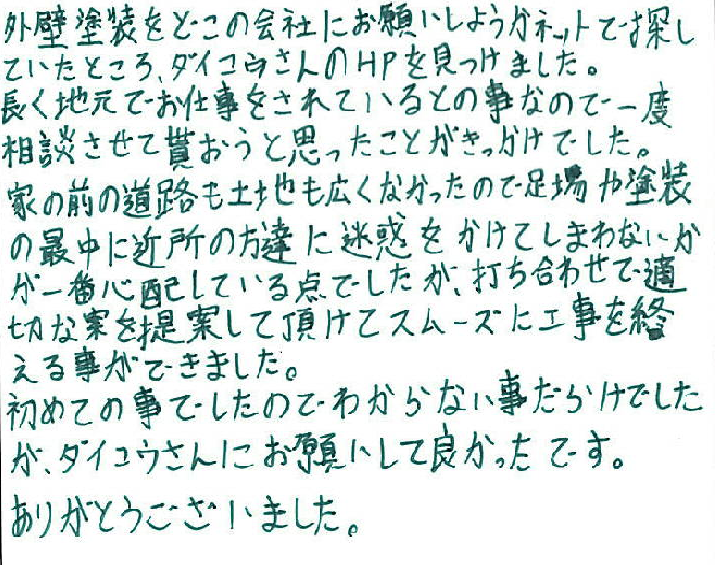 外壁塗装をどこの会社にお願いしようかネットで探し
ていたところ、ダイコウさんのHPを見つけました。
長く地元でお仕事をされているとの事なので一度
相談させて貰おうと思ったことがきっかけでした。
家の前の道路も土地も広くなかったので足場や塗装
の最中に近所の方達に迷惑をかけてしまわないか
が一番心配している点でしたが、打ち合わせで適
切な案を提案して頂けてスムーズに工事を終
える事ができました。
初めての事でしたのでわからない事だらけでした
が、ダイコウさんにお願いして良かったです。
ありがとうございました。